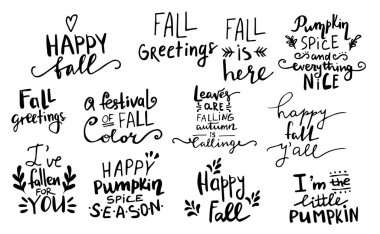 HAPPY
fall
FALL
Greetings
FALL
IS
here
Pumpkin
SPICE
and
everything
NiCE
Fall
greetings
A festival
OF FALL
Color
Leaves
ARE
FALLING
autumn
IS
Calling
happy
fall
y'all
I've
fallen
FOR
YOU
HAPPY
Pumpkin
SPICE
SEASON
Happy
Fall
I'm the
little
PUMPKIN